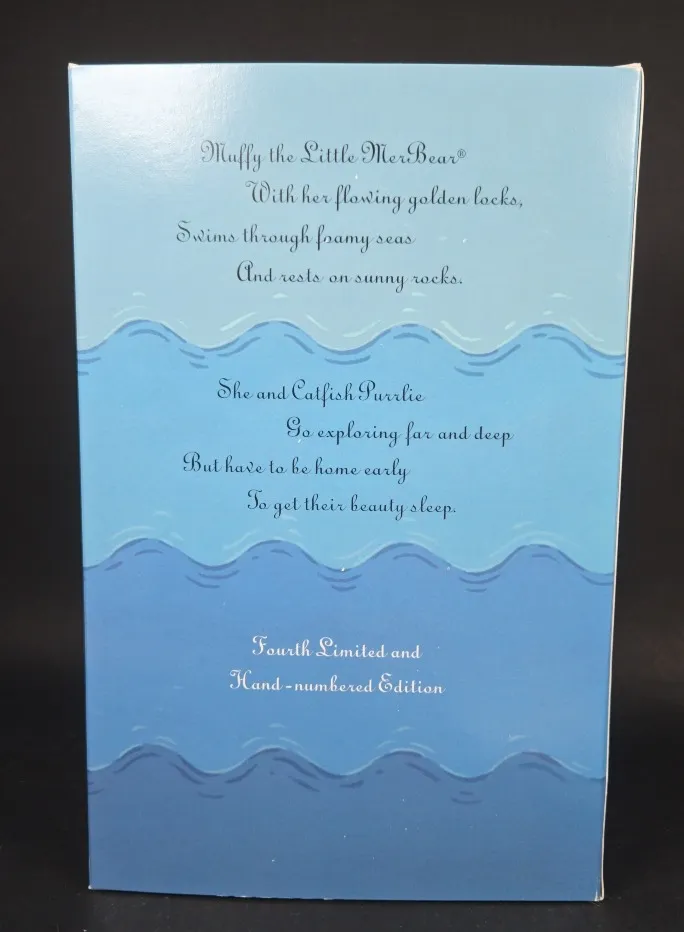 Muffy the Little MerBear®
With her flowing golden locks,
Swims through foamy seas
And rests on sunny rocks.
She and Catfish Purrlie
Go exploring far and deep
But have to be home early
To get their beauty sleep.
Fourth Limited and
Hand-numbered Edition